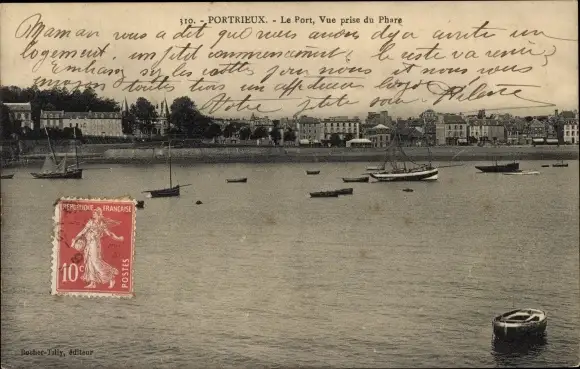 310. - PORTRIEUX. - Le Port, Vue prise du Phare
Maman vous a dit que nous avons déjà arrêté un
logement, un petit commencement, le reste va venir
Embrassez les pour nous et nous vous
envoyons toutes trois un affectueux
Votre petite
RÉPUBLIQUE FRANÇAISE
10c POSTES
Rucher-Jolly, éditeur